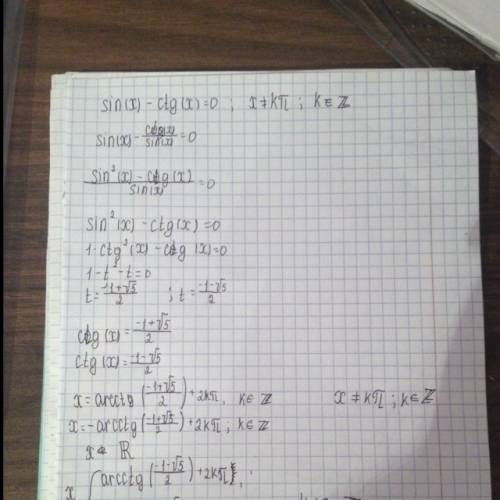 sin(x) - ctg(x) = 0 ; x ≠ kπ ; k ∈ ℤ
sin(x) - ctg(x)/sin(x) = 0
(sin²(x) - ctg(x))/sin(x) = 0
sin²(x) - ctg(x) = 0
1 - ctg²(x) - ctg(x) = 0
1 - t² - t = 0
t = (-1+√5)/2 ; t = (-1-√5)/2
ctg(x) = (-1+√5)/2
ctg(x) = (-1-√5)/2
x = arcctg((-1+√5)/2) + 2kπ, k ∈ ℤ x ≠ kπ ; k ∈ ℤ
x = -arcctg((-1+√5)/2) + 2kπ ; k ∈ ℤ
x ∈ ℝ
x { arcctg((-1-√5)/2) + 2kπ